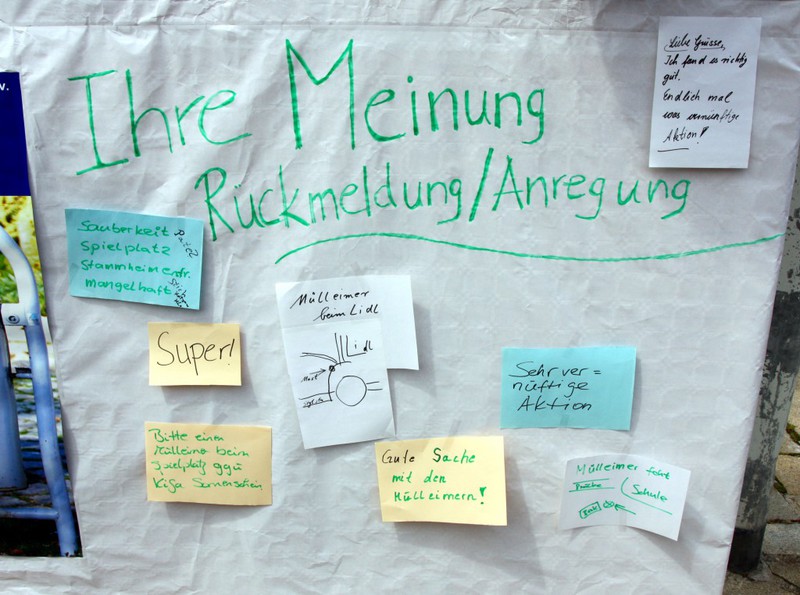 Ihre Meinung
Rückmeldung/Anregung
Liebe Grüsse,
Ich fand es richtig
gut.
Endlich mal
was vernünftige
Aktion!
Sauberkeit
Spielplatz
Stammheimerstr.
mangelhaft
Super!
Mülleimer
beim Lidl
Lidl
Sehr ver=
nüftige
Aktion
Bitte einen
Mülleimer beim
Spielplatz ggü
KiGa Sonnenschein
Gute Sache
mit den
Mülleimern!
Mülleimer fehlt
Schule
v.